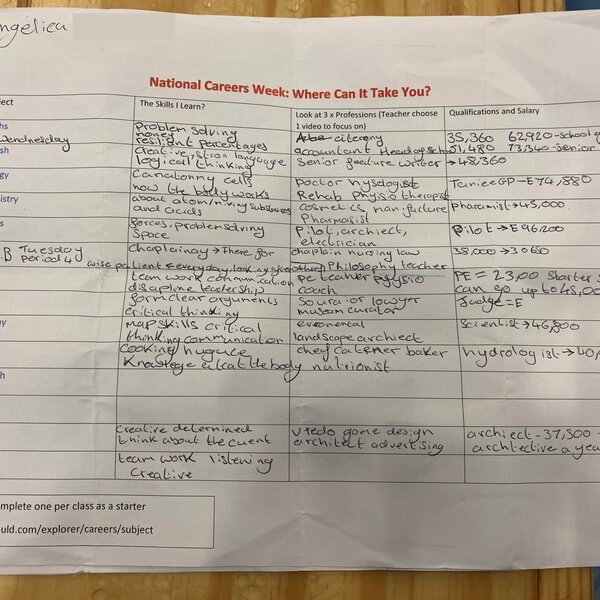 ngelica
National Careers Week: Where Can It Take You?
ject
The Skills I Learn?
Look at 3 x Professions (Teacher choose
1 video to focus on)
Qualifications and Salary
hs
Wendnesday
problem solving
money
resilient percentages
35,360 62,920-school g
sh
creative, stron language
logical thinking
accountant Head of scho
Senior feature writer → 48,360
51,480 73,340-senior
gy
canatomy cells
now the body works
Rehab physio therapist
GP-E74,880
istry
about atom/mixing substances
and acids
cosmetics manifacture
Pharmasist
pharamist→45,000
s
forces, problem solving
space
pilot, architect,
electrician
pilot → E96,200
B Tuesday
period 4
chaplainay → There for
wise patient everyday, looking after others
chaplain nursing law
philosophy teacher
38,000 → 30 650
team work communication
disapline leadership
pe teacher pysyio
coach
PE = 23,00 starter s
can go up to 45,00
form clear arguments
critical thinking
lowyer
museam curator
Judge = E
hy
map skills critical
thinking communication
landscape archiect
Scientist→46,800
cooking hugence
Knowlege
the body
chef caterer baker
nutrionist
hydrologist→40,
h
Creative determined
think about the cuent
viedo game design
architect advertising
archiect-37,500
archtective a yea
team work listening
Creative
mplete one per class as a starter
uld.com/explorer/careers/subject